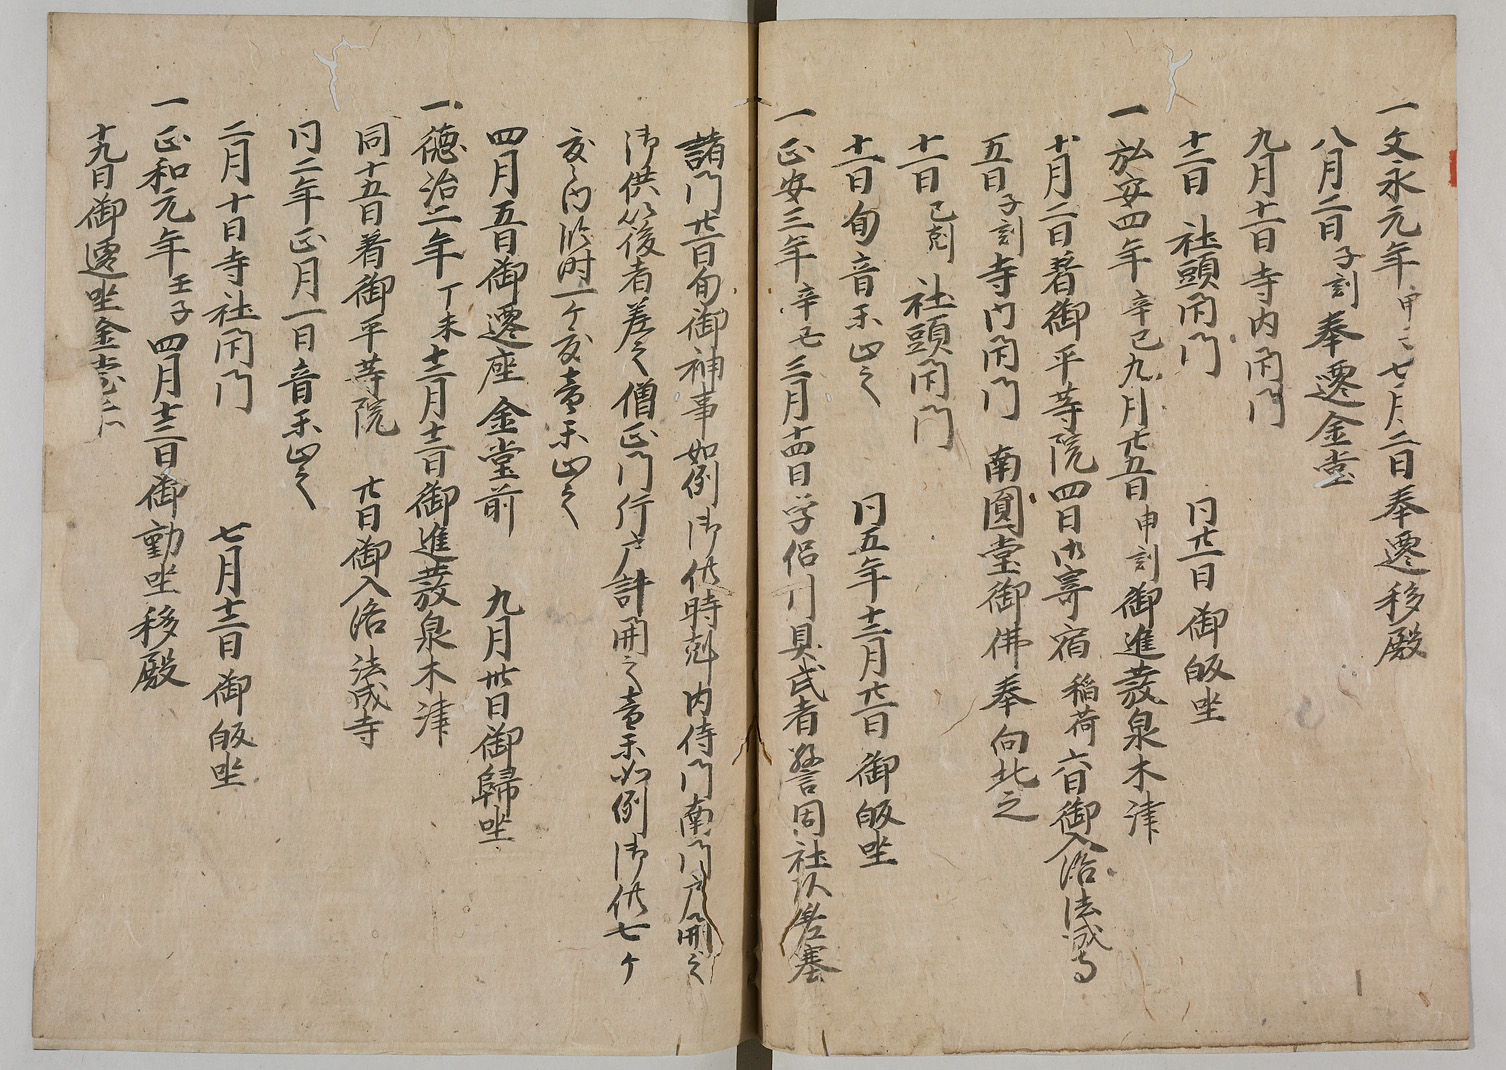 一文永元年甲子七月二日奉遷移殿
八月二日子刻奉遷金堂
九月十一日寺内閇門
十二日 社頭閇門 同廿一日御皈坐
一弘安四年辛巳九月廿五日申刻御進發泉木津
十月二日著御平等院四日御寄宿稲荷六日御入洛法成寺
五日子刻寺門閇門 南圓堂御佛奉向北之
十一日已剋社頭閇門
十一日旬音楽止之 同五年十二月廿一日御皈坐
一正安三年辛丑三月十四日学侶 具武者警固社以 塞
諸門廿一日旬御神事如例御供時剋内侍門南門戸開之
御供以後者差之僧正門行戸計開之音楽如例御供七ケ
度之内 時一ケ度音楽止之
四月五日御遷座金堂前 九月卅日御歸坐
一徳治二年丁未十二月十二日御進發泉木津
同十五日着御平等院 廿日御入洛法成寺
同二年正月一日音楽止之
二月十日寺社閇門 七月十二日御皈坐
一正和元年壬子四月十三日御動坐移殿
十九日御遷坐金堂